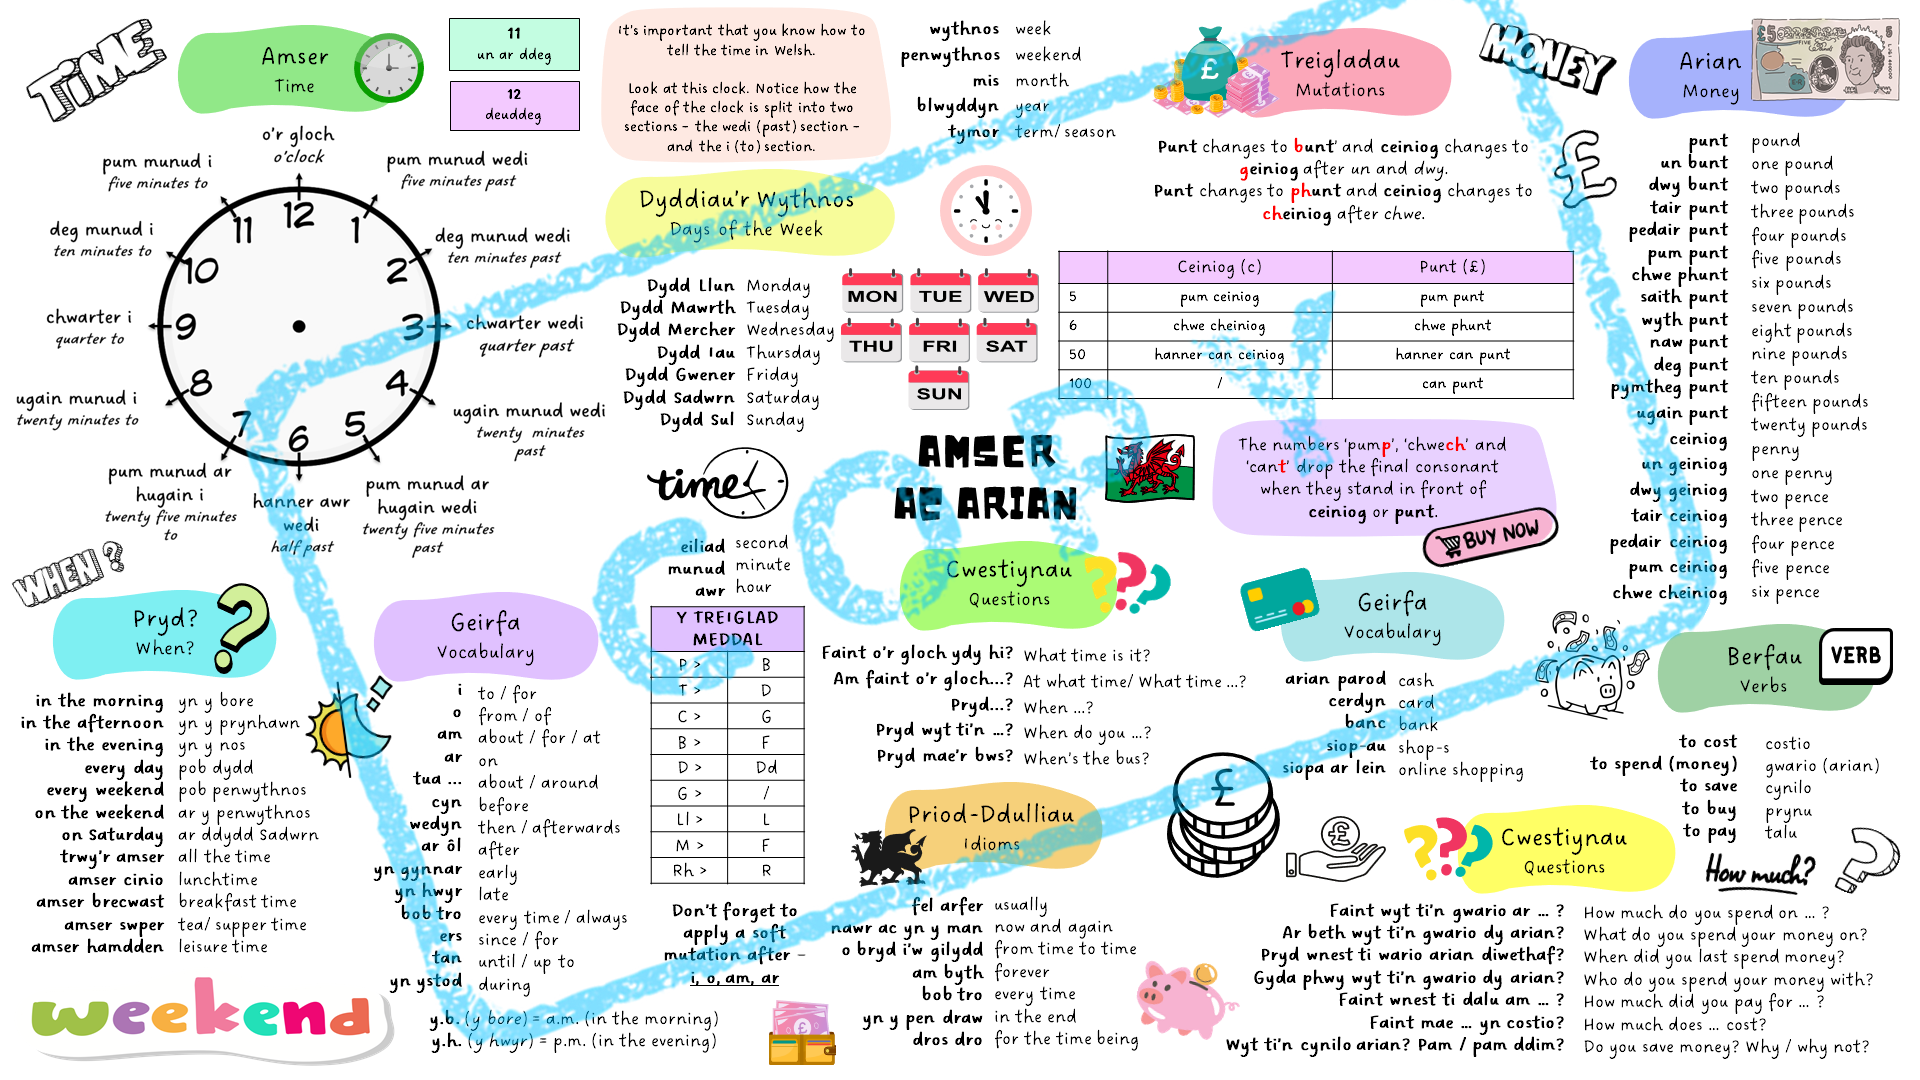 TIME
Amser
Time
11
un ar ddeg
12
deuddeg
o'r gloch
o'clock
pum munud wedi
five minutes past
deg munud wedi
ten minutes past
chwarter wedi
quarter past
ugain munud wedi
twenty minutes
past
pum munud ar
hugain wedi
twenty five minutes
past
hanner awr
wedi
half past
pum munud ar
hugain i
twenty five minutes
to
ugain munud i
twenty minutes to
chwarter i
quarter to
deg munud i
ten minutes to
pum munud i
five minutes to
12
1
2
3
4
5
6
7
8
9
10
11
It's important that you know how to
tell the time in Welsh.
Look at this clock. Notice how the
face of the clock is split into two
sections - the wedi (past) section -
and the i (to) section.
wythnos week
penwythnos weekend
mis month
blwyddyn year
tymor term/ season
Dyddiau'r Wythnos
Days of the Week
Dydd Llun Monday
Dydd Mawrth Tuesday
Dydd Mercher Wednesday
Dydd Iau Thursday
Dydd Gwener Friday
Dydd Sadwrn Saturday
Dydd Sul Sunday
MON TUE WED
THU FRI SAT
SUN
time
eiliad second
munud minute
awr hour
AMSER
AC ARIAN
COPY
Treigladau
Mutations
Punt changes to bunt' and ceiniog changes to
geiniog after un and dwy.
Punt changes to phunt and ceiniog changes to
cheiniog after chwe.
Ceiniog (c) Punt (£)
5 pum ceiniog pum punt
6 chwe cheiniog chwe phunt
50 hanner can ceiniog hanner can punt
100 / can punt
The numbers 'pump', 'chwech' and
'cant' drop the final consonant
when they stand in front of
ceiniog or punt.
BUY NOW
MONEY
Arian
Money
£5
£
punt pound
un bunt one pound
dwy bunt two pounds
tair punt three pounds
pedair punt four pounds
pum punt five pounds
chwe phunt six pounds
saith punt seven pounds
wyth punt eight pounds
naw punt nine pounds
deg punt ten pounds
pymtheg punt fifteen pounds
ugain punt twenty pounds
ceiniog penny
un geiniog one penny
dwy geiniog two pence
tair ceiniog three pence
pedair ceiniog four pence
pum ceiniog five pence
chwe cheiniog six pence
WHEN?
Pryd?
When?
in the morning yn y bore
in the afternoon yn y prynhawn
in the evening yn y nos
every day pob dydd
every weekend pob penwythnos
on the weekend ar y penwythnos
on Saturday ar ddydd Sadwrn
trwy'r amser all the time
amser cinio lunchtime
amser brecwast breakfast time
amser swper tea/ supper time
amser hamdden leisure time
weekend
Geirfa
Vocabulary
i to / for
o from / of
am about / for / at
ar on
tua ... about / around
cyn before
wedyn then / afterwards
ar ôl after
yn gynnar early
yn hwyr late
bob tro every time / always
ers since / for
tan until / up to
yn ystod during
y.b. (y bore) = a.m. (in the morning)
y.h. (y hwyr) = p.m. (in the evening)
Y TREIGLAD
MEDDAL
P > B
T > D
C > G
B > F
D > Dd
G > /
Ll > L
M > F
Rh > R
Don't forget to
apply a soft
mutation after -
i, o, am, ar
Cwestiynau
Questions
Faint o'r gloch ydy hi? What time is it?
Am faint o'r gloch...? At what time/ What time ...?
Pryd...? When ...?
Pryd wyt ti'n ...? When do you ...?
Pryd mae'r bws? When's the bus?
Priod-Ddulliau
Idioms
fel arfer usually
nawr ac yn y man now and again
o bryd i'w gilydd from time to time
am byth forever
bob tro every time
yn y pen draw in the end
dros dro for the time being
Geirfa
Vocabulary
arian parod cash
cerdyn card
banc bank
siop-au shop-s
siopa ar lein online shopping
Berfau
Verbs
VERB
to cost costio
to spend (money) gwario (arian)
to save cynilo
to buy prynu
to pay talu
Cwestiynau
Questions
How much?
Faint wyt ti'n gwario ar ... ? How much do you spend on ... ?
Ar beth wyt ti'n gwario dy arian? What do you spend your money on?
Pryd wnest ti wario arian diwethaf? When did you last spend money?
Gyda phwy wyt ti'n gwario dy arian? Who do you spend your money with?
Faint wnest ti dalu am ... ? How much did you pay for ... ?
Faint mae ... yn costio? How much does ... cost?
Wyt ti'n cynilo arian? Pam / pam ddim? Do you save money? Why / why not?